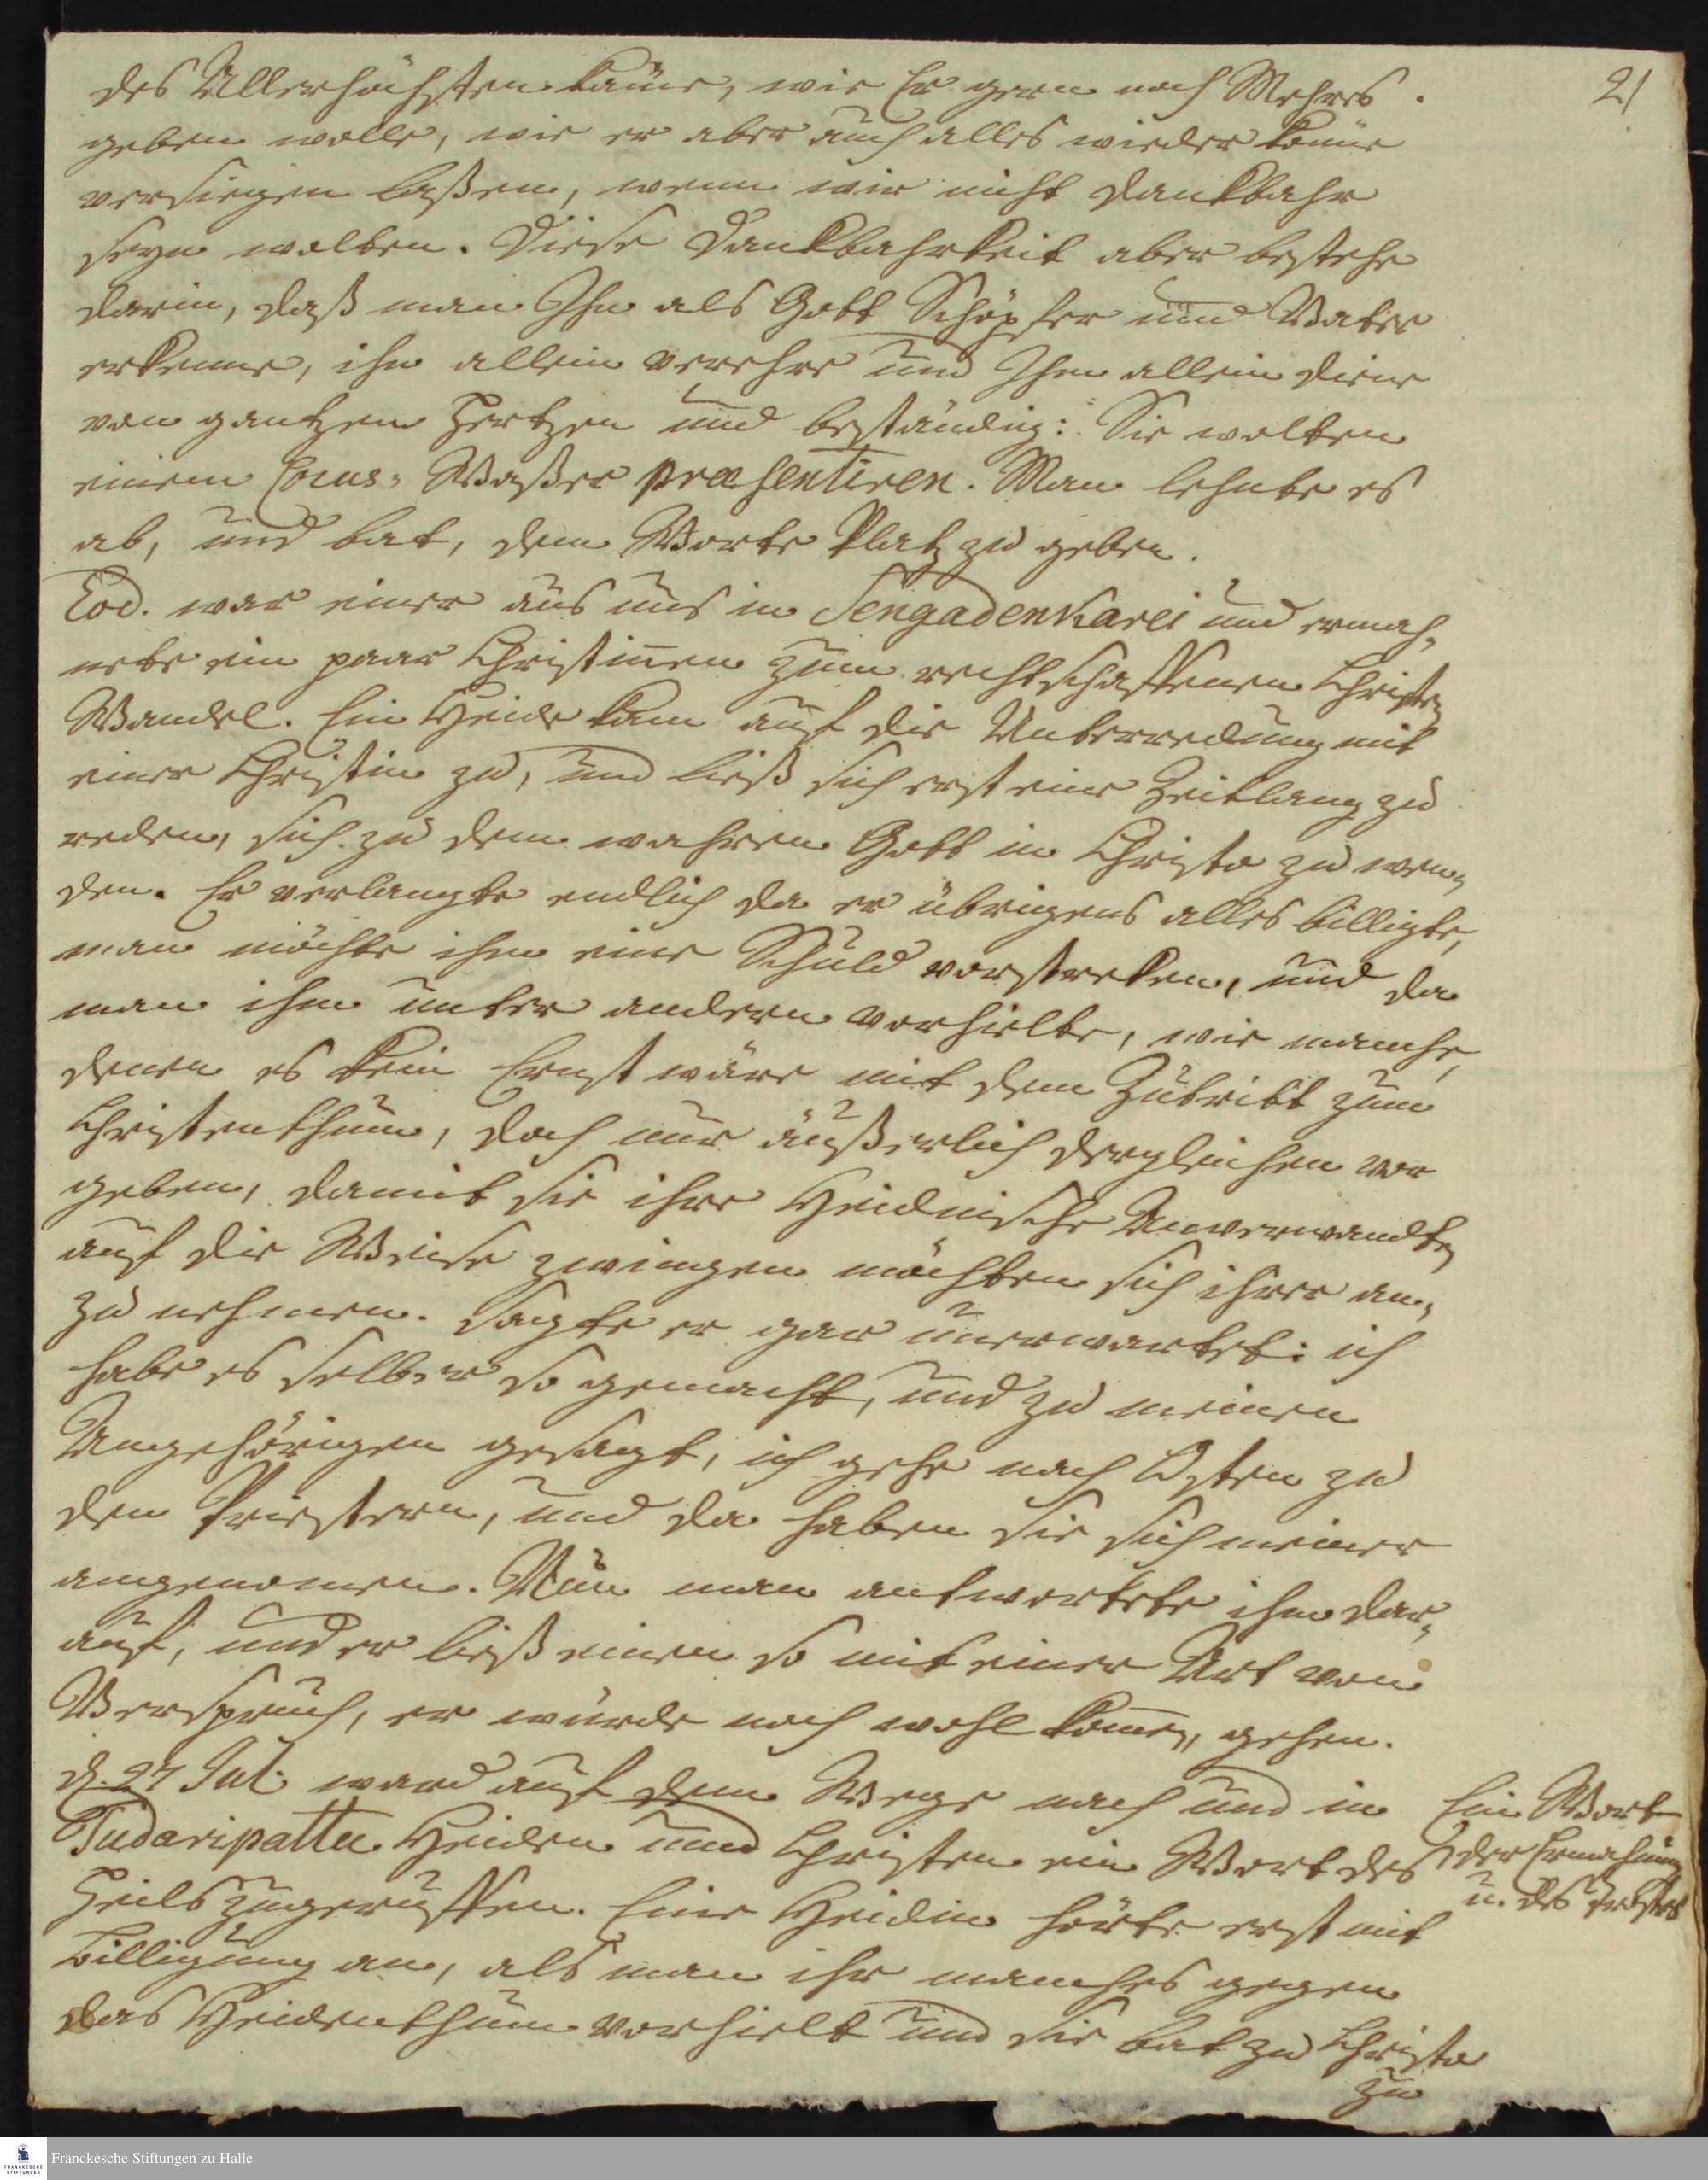 21
des Allerhöchsten käme, wie Er gern noch Mehres
geben wolle, wie er aber auch alles wieder könne
versiegen laßen, wenn wir nicht dankbahr
seyn wolten. Diese Dankbahrkeit aber bestehe
darin, daß man Ihn als Gott Schöpfer und Vater
erkenne, ihn allein verehre und Ihm allein diene
von gantzem Hertzen und beständig: Sie wolten
einem Cocus-Waßer præsentiren. Man lehnte es
ab, und bat, dem Worte Platz zu geben.
Eod. war einer aus uns in Sengadenkarei und ermah-
nete ein paar Christinnen zum rechtschaffenen Christen
Wandel. Ein Heide kam auf die Unterredung mit
einer Christin zu, und ließ sich erst eine Zeitlang zu
reden, sich zu dem wahren Gott in Christo zu wen-
den. Er verlangte endlich da er übrigens alles billigte,
man möchte ihm eine Schuld vorstreken, und da
man ihm unter andern vorhielte, wie manche,
denen es kein Ernst wäre mit dem Zutritt zum
Christenthum, doch nur äußerlich dergleichen vor
geben, damit sie ihre Heidnische Anverwandten
auf die Weise zwingen möchten sich ihrer an-
zu nehmen. sagte er gar unerwartet: ich
habe es selber so gemacht, und zu meinen
Angehörigen gesagt, ich gehe nach Osten zu
den Priestern, und da haben sie sich meiner
angenomen. Nun man antwortete ihm dar-
auf, und er ließ einen so mit einer Art von
Verspruch, er würde noch wohl komen, gehen.
d. 27 Jul. ward auf dem Wege nach und in
Tudaripattu Heiden und Christen ein Wort des
Heils zugeruffen. Eine Heidin hörte erst mit
Billigung an, als man ihr manches gegen
das Heidenthum vorhielt und sie bat zu Christo
zu
Ein Wort
der Ermahnung
u. des Trostes
Franckesche Stiftungen zu Halle
FRANCKESCHE
STIFTUNGEN